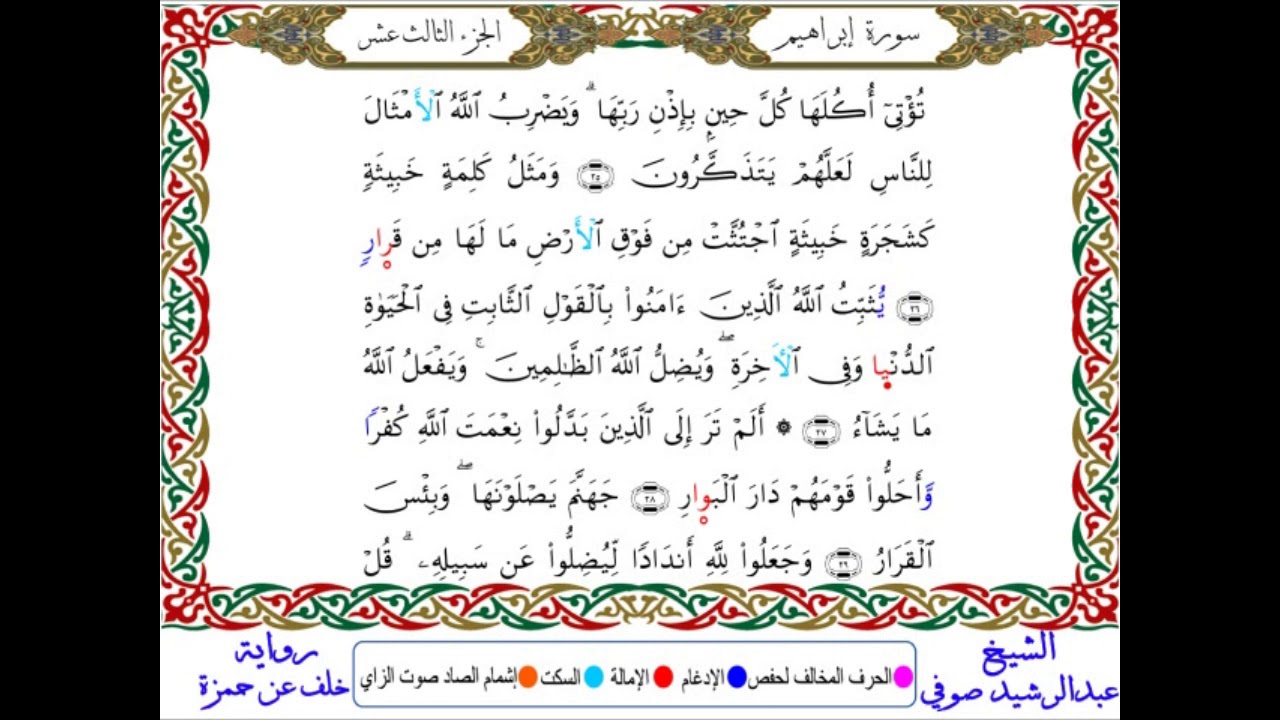 سورة إبراهيم
الجزء الثالث عشر
تُؤْتِىٓ أُكُلَهَا كُلَّ حِينِۭ بِإِذْنِ رَبِّهَا ۗ وَيَضْرِبُ ٱللَّهُ ٱلْأَمْثَالَ
لِلنَّاسِ لَعَلَّهُمْ يَتَذَكَّرُونَ ٢٥ وَمَثَلُ كَلِمَةٍ خَبِيثَةٖ
كَشَجَرَةٍ خَبِيثَةٍ ٱجْتُثَّتْ مِن فَوْقِ ٱلْأَرْضِ مَا لَهَا مِن قَرارٖ
٢٦ يُّثَبِّتُ ٱللَّهُ ٱلَّذِينَ ءَامَنُوا۟ بِٱلْقَوْلِ ٱلثَّابِتِ فِى ٱلْحَيَوٰةِ
ٱلدُّنْيا وَفِى ٱلْأَخِرَةِ ۖ وَيُضِلُّ ٱللَّهُ ٱلظَّـٰلِمِينَ ۚ وَيَفْعَلُ ٱللَّهُ
مَا يَشَآءُ ٢٧ ۞ أَلَمْ تَرَ إِلَى ٱلَّذِينَ بَدَّلُوا۟ نِعْمَتَ ٱللَّهِ كُفْرٗا
وَّأَحَلُّوا۟ قَوْمَهُمْ دَارَ ٱلْبَوارِ ٢٨ جَهَنَّمَ يَصْلَوْنَهَا ۖ وَبِئْسَ
ٱلْقَرَارُ ٢٩ وَجَعَلُوا۟ لِلَّهِ أَندَادٗا لِّيُضِلُّوا۟ عَن سَبِيلِهِۦ ۗ قُلْ
الشيخ
عبدالرشيد صوفي
الحرف المخالف لحفص الإدغام الإمالة السكت إشمام الصاد صوت الزاي
رواية
خلف عن حمزة